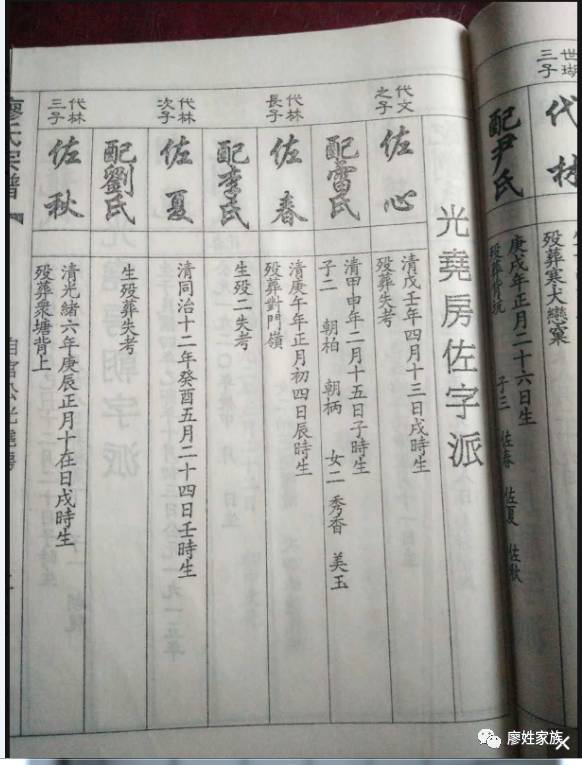 世瑚
三子
代林
殁葬寒大戀窠
配尹氏
庚戌年正月二十六日生
殁葬背坑 子三 佐春 佐夏 佐秋
光堯房佐字派
代文
之子
佐心
清戊壬年四月十三日戌時生
殁葬失考
配雷氏
清甲申年二月十五日子時生
子二 朝柏 朝柄 女二 秀香 美玉
代林
長子
佐春
清庚午年正月初四日辰時生
殁葬對門嶺
配李氏
生殁二失考
代林
次子
佐夏
清同治十二年癸酉五月二十四日壬時生
配劉氏
生殁葬失考
代林
三子
佐秋
清光緒六年庚辰正月十在日戌時生
殁葬衆塘背上
廖氏宗譜
廖姓家族